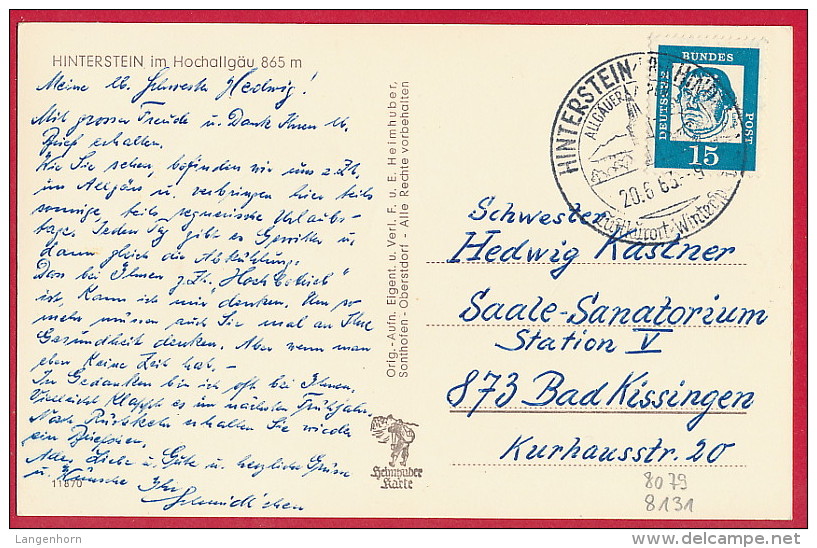 HINTERSTEIN im Hochallgäu 865 m
Meine lb. Schwester Hedwig!
Mit grosser Freude u. Dank Ihren lb.
Brief erhalten.
Wie Sie sehen, befinden wir uns z. Zt.
im Allgäu u. verbringen hier teils
sonnige, teils regnerische Urlaubs-
tage. Jeden Tag gibt es Gewitter u.
dann gleich die Abkühlung.
Dass bei Ihnen z. Zt. "Hochbetrieb"
ist, kann ich mir denken. Um so
mehr müssen auch Sie mal an Ihre
Gesundheit denken. Aber wenn man
eben keine Zeit hat. -
In Gedanken bin ich oft bei Ihnen.
Vielleicht klappt es im nächsten Frühjahr.
Nach Rückkehr erhalten Sie wieder
ein Brieflein.
Alles Liebe u. Gute u. herzliche Grüsse
u. Wünsche Ihr
Schmidtchen
11870
Orig.-Aufn. Eigent. u. Verl. F. u. E. Heimhuber,
Sonthofen - Oberstdorf - Alle Rechte vorbehalten
Heimhuber
Karte
HINTERSTEIN
ALLGÄUER
20.6.63
Luftkurort
DEUTSCHE
BUNDES
POST
15
Schwester
Hedwig Kästner
Saale-Sanatorium
Station V
873 Bad Kissingen
Kurhausstr. 20
8079
8131
Langenhorn
delcampe.net